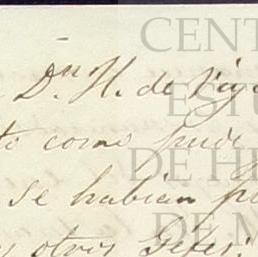 Dn H. de Vig
to como pude
se habian p
otros Gefes:
CENT
EST
DE H
DE M